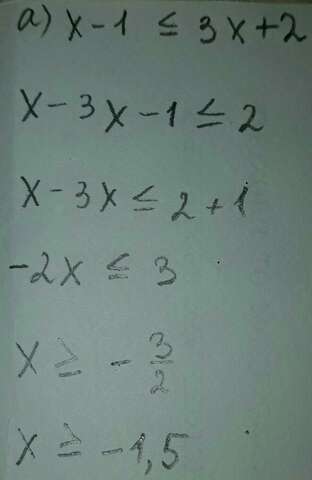 а) x-1 ≤ 3x+2
x-3x-1 ≤ 2
x-3x ≤ 2+1
-2x ≤ 3
x ≥ -3/2
x ≥ -1,5